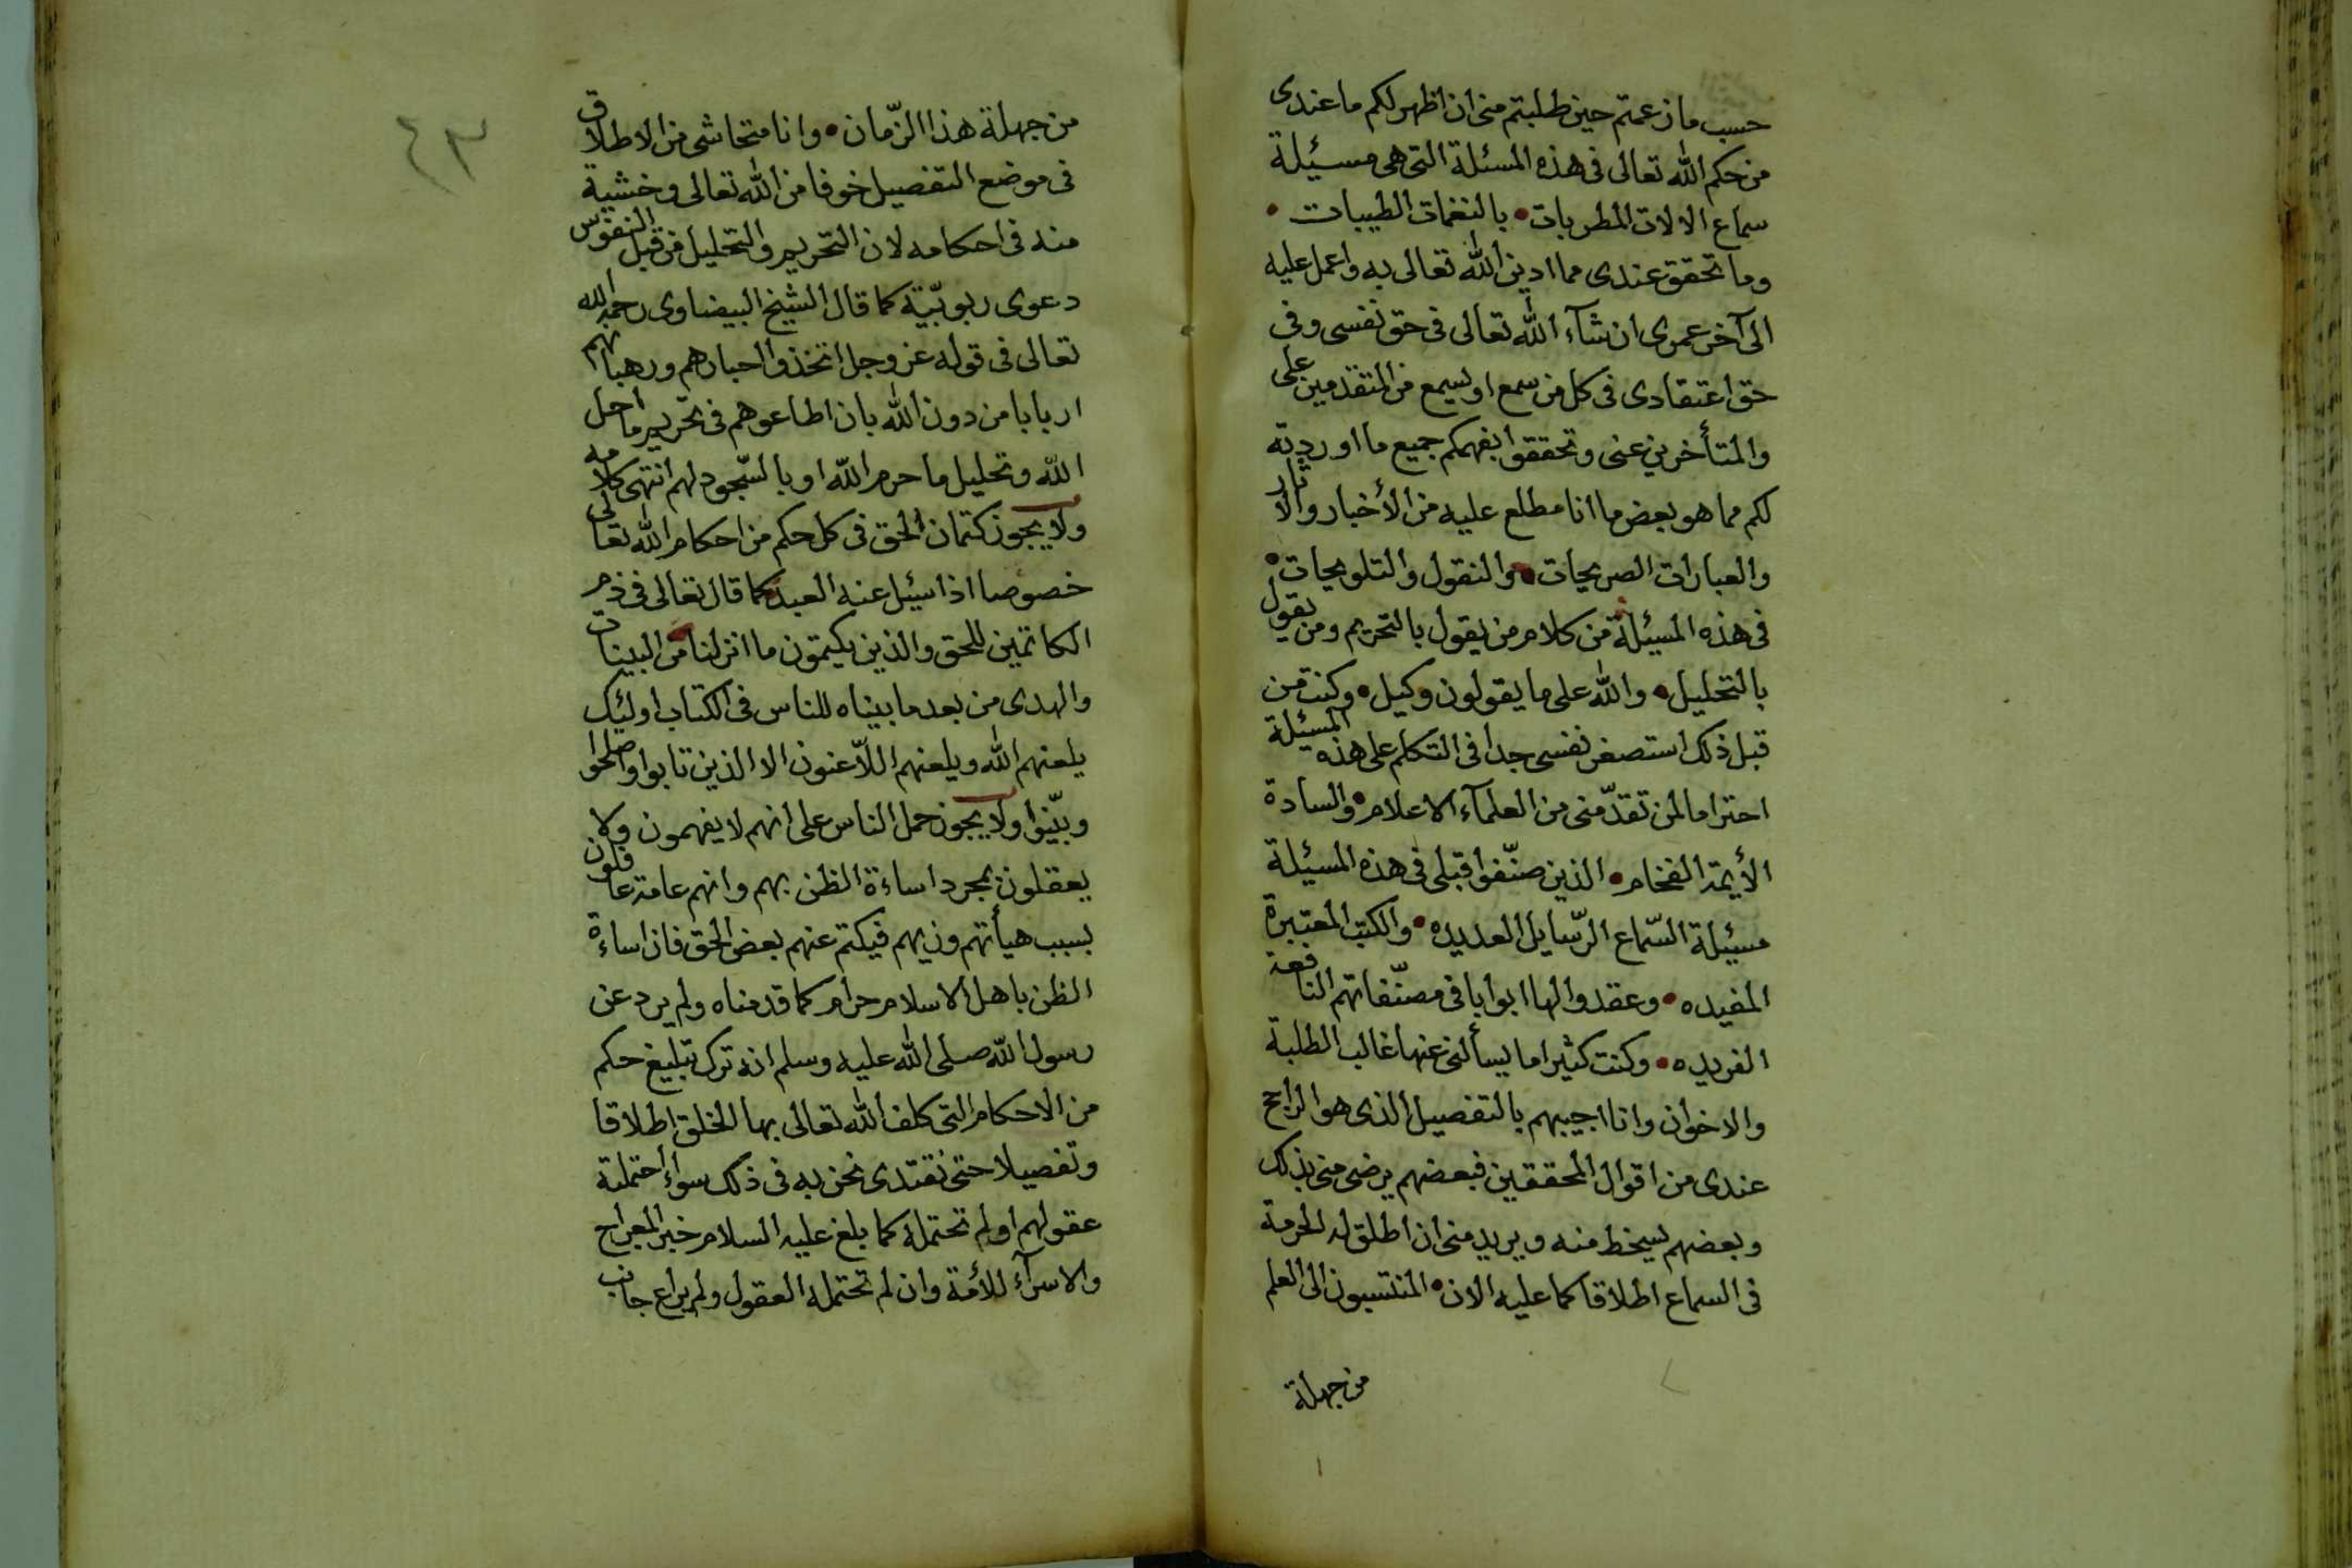 حسب ما زعمتم حين طلبتم منى ان اظهر لكم ما عندى
من حكم الله تعالى فى هذه المسئلة التى هى مسئيلة
سماع الالات المطربات • بالنغمات الطيبات •
وما تحقق عندى مما ادين الله تعالى به واعمل عليه
الى آخر عمرى ان شآء الله تعالى فى حق نفسى وفى
حق اعتقادى فى كل من سمع او يسمع من المتقدمين على
والمتأخرين عنى وتحققوا بفهمكم جميع ما اوردته
لكم مما هو بعض ما انا مطلع عليه من الأخبار والاثار
والعبارات الصريحات • والنقول والتلويحات •
فى هذه المسيئلة من كلام من يقول بالتحريم ومن يقول
بالتحليل • والله على ما يقولون وكيل • وكنت من
قبل ذلك استصغر نفسى جدا فى التكلم على هذه المسيئلة
احتراما لمن تقدّمنى من العلمآء الاعلام • والسادة
الأيمة الفخام • الذين صنّفوا قبلى فى هذه المسيئلة
مسيئلة السّماع الرّسايل العديده • والكتب المعتبرة
المفيده • وعقدوا لها ابوابا فى مصنّفاتهم النافعة
الفريده • وكنت كثيرا ما يسألنى عنها غالب الطلبة
والاخوان وانا اجيبهم بالتفصيل الذى هو الراجح
عندى من اقوال المحققين فبعضهم يرضى منى بذلك
وبعضهم يسخط منه ويريد منى ان اطلق له الحرمة
فى السماع اطلاقا كما عليه الان • المنتسبون الى العلم
من جهلة
٤٣
من جهلة هذا الزّمان • وانا متحاشى من الاطلاق
فى موضع التفصيل خوفا من الله تعالى وخشية
منه فى احكامه لان التحريم والتحليل من قبل النفوس
دعوى ربوبّية كما قال الشيخ البيضاوى رحمه الله
تعالى فى قوله عز وجل اتخذوا احبارهم ورهبانهم
اربابا من دون الله بان اطاعوهم فى تحريم ما احل
الله وتحليل ما حرم الله او بالسّجود لهم انتهى كلامه
ولا يجوز كتمان الحق فى كل حكم من احكام الله تعالى
خصوصا اذا سيئل عنه العبد كما قال تعالى فى ذم
الكاتمين للحق والذين يكتمون ما انزلنا من البينات
والهدى من بعد ما بيناه للناس فى الكتاب اوليئك
يلعنهم الله ويلعنهم اللّاعنون الا الذين تابوا واصلحوا
وبيّنوا ولا يجوز حمل الناس على انهم لا يفهمون ولا
يعقلون بمجرد اساءة الظن بهم وانهم عامة غافلون
بسبب هيأتهم وزيهم فيكتم عنهم بعض الحق فان اساءة
الظن باهل الاسلام حرام كما قدمناه ولم يرد عن
رسول الله صلى الله عليه وسلم انه ترك تبليغ حكم
من الاحكام التى كلف الله تعالى بها الخلق اطلاقا
وتفصيلا حتى نقتدى نحن به فى ذلك سواء احتملته
عقولهم او لم تحتمله كما بلغ عليه السلام خبر المعراج
والاسرآء للأمة وان لم تحتمله العقول ولم يراع جانب